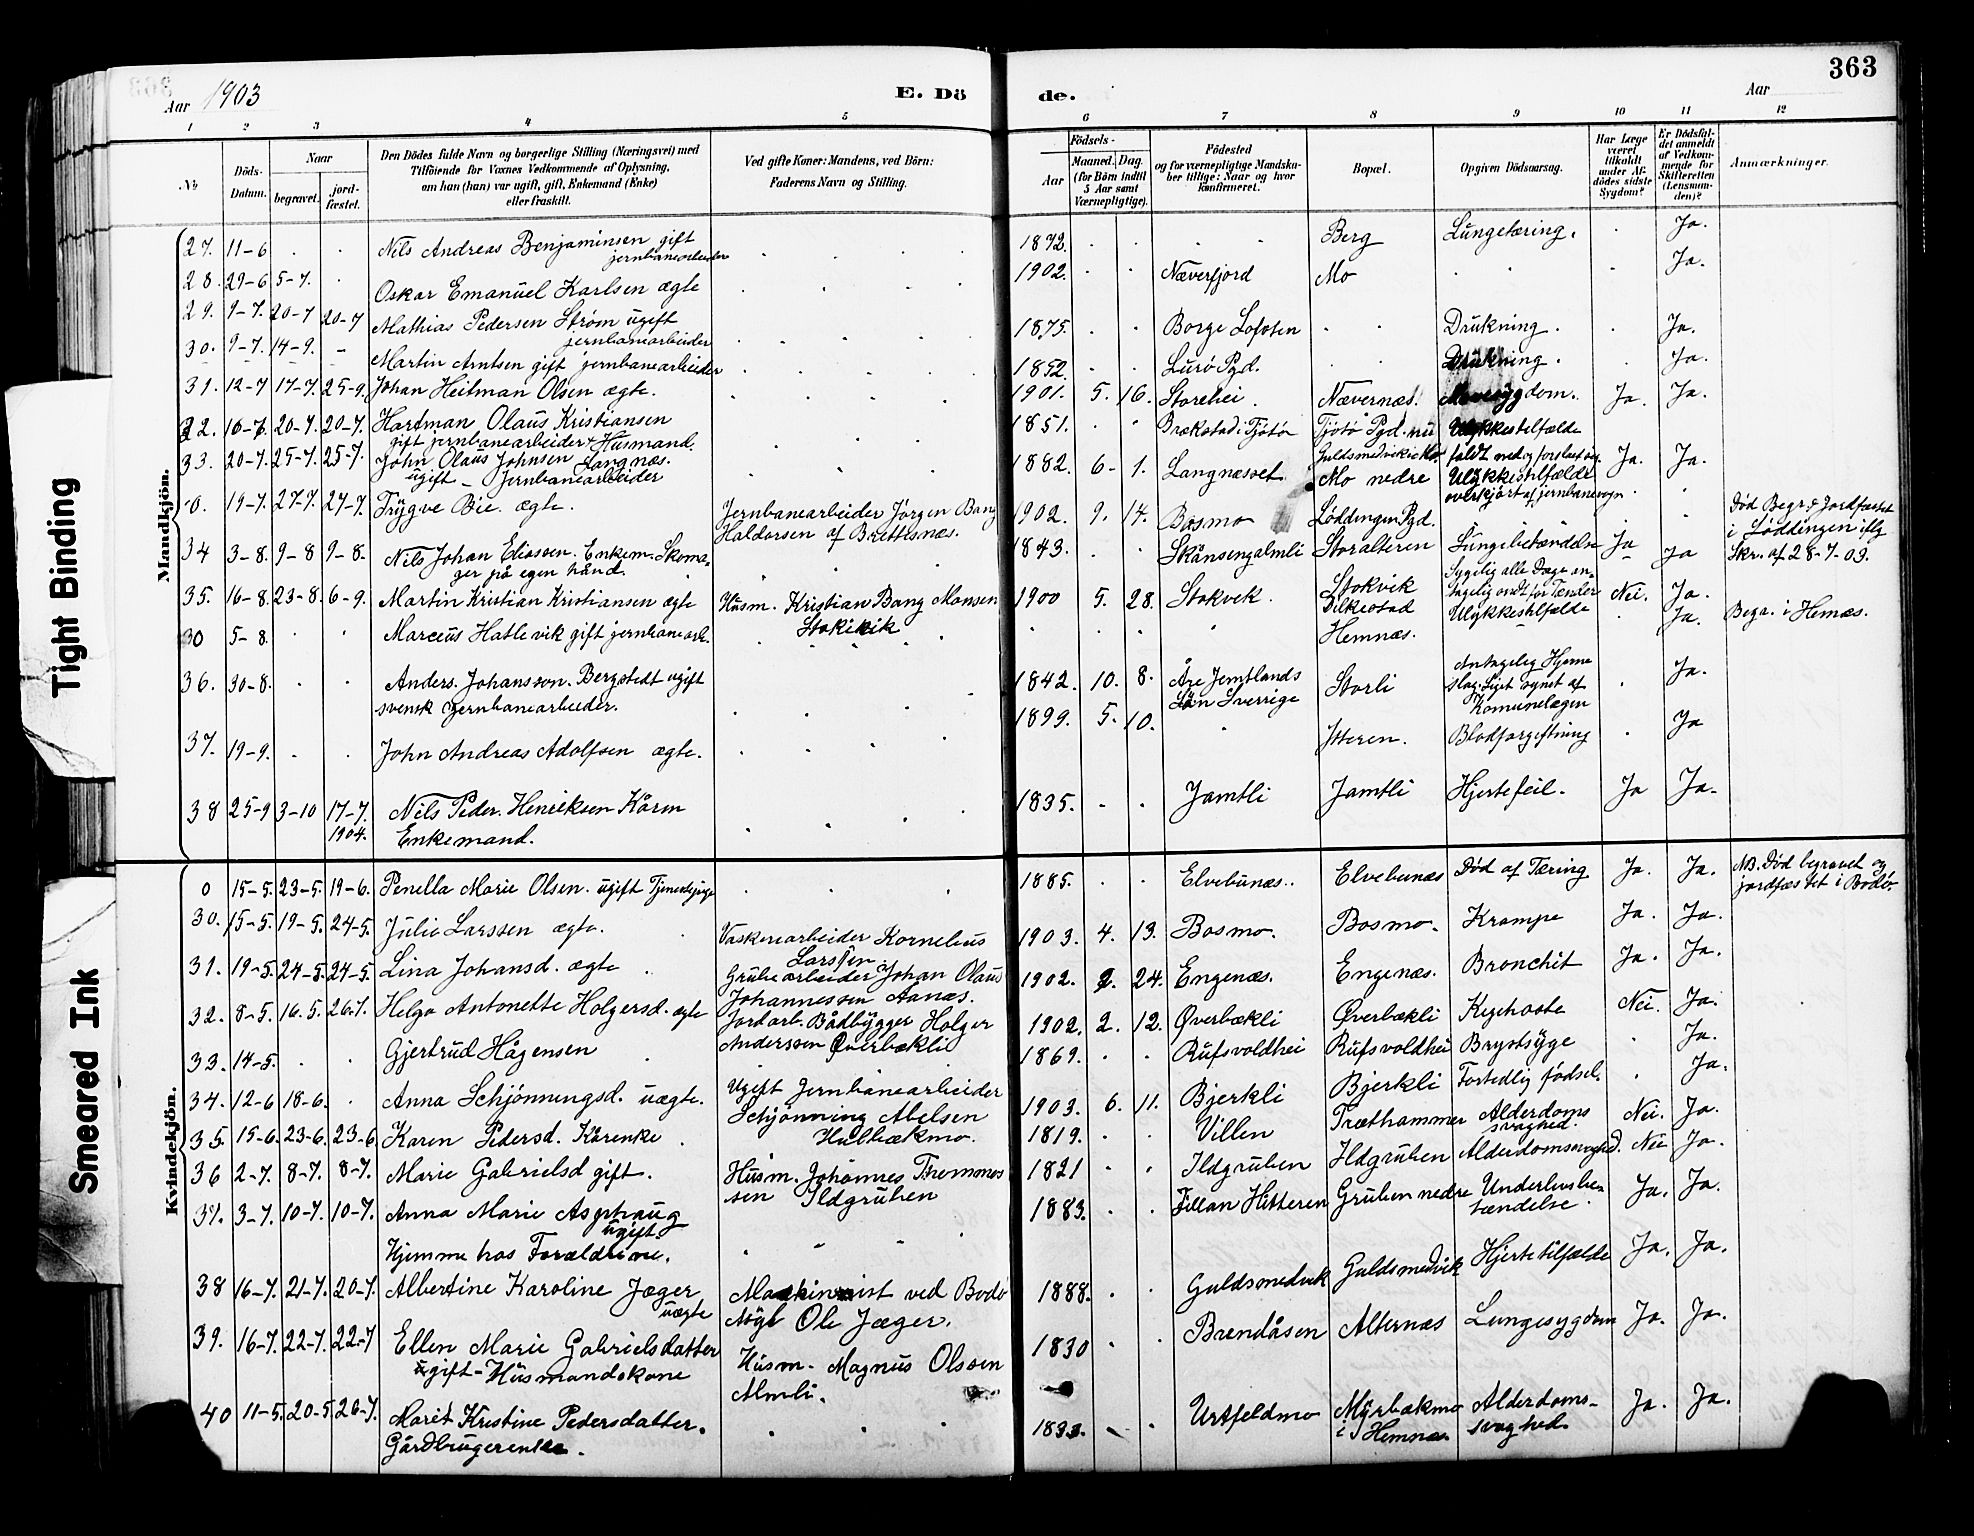 363
Aar 1903
E. Dö de.
Aar
1 2 3 4 5 6 7 8 9 10 11 12
№
Döds-Datum.
Naar
begravet.
jord-fæstet.
Den Dödes fulde Navn og borgerlige Stilling (Næringsvei) med
Tilföiende for Voxnes Vedkommende af Oplysning,
om han (hun) var ugift, gift, Enkemand (Enke)
eller fraskilt.
Ved gifte Koner: Mandens, ved Börn:
Faderens Navn og Stilling.
Födsels-
Aar
Maaned. Dag.
(for Börn indtil
5 Aar samt
Værnepligtige).
Födested
og for værnepligtige Mandska-
ber tillige: Naar og hvor
konfirmeret.
Bopæl.
Opgiven Dödsaarsag.
Har Læge
været
tilkaldt
under Af-
dödes sidste
Sygdom?
Er Dödsfal-
det anmeldt
af Vedkom-
mende for
Skifteretten
(Lensman-
den)?
Anmærkninger.
Mandkjön.
27. 11-6 . . Nils Andreas Benjaminsen gift jernbanearbeider . 1872. . . . Berg Lungetæring. . Ja.
28. 29-6 5-7. . Oskar Emanuel Karlsen ægte . 1902. . . Næverfjord Mo . . Ja.
29. 9-7. 20-7 20-7 Mathias Pedersen Strøm ugift jernbanearbeider . 1875. . . Borge Lofoten . Drukning. . Ja.
30. 9-7. 14-9. - Martin Arntsen gift jernbanearbeider . 1852. . . Lurø Pgd. . Drukning. . Ja.
31. 12-7 17-7. 25-9. Johan Heitman Olsen ægte. . 1901. 5. 16. Storehei. Nævernæs. Mavesygdom. Ja. Ja.
32. 16-7. 20-7. 20-7. Hartman Olaus Kristiansen
gift jernbanearbeider & Husmand. . 1851. . . Brækstad i Tjøtø Tjøtø Pgd. nu Guldsmedvik i Mo Ulykkestilfælde
33. 20-7. 25-7. 25-7. John Olaus Johnsen Langnæs.
ugift - Jernbanearbeider . 1882. 6- 1. Langnæsset Mo nedre Ulykkestilfælde
overkjørt af jernbanevogn. Ja. Ja.
0. 19-7. 27-7. 27-7. Trygve Bie. ægte. Jernbanearbeider Jörgen Bang
Haldorsen af Brettesnæs. 1902. 9. 14. Bosmo Løddingen Pgd. . . Død Begr. & Jordfæstet
i Løddingen iflg
Skr. af 28-7-03.
34 3-8. 9-8 9-8. Nils Johan Eliassen. Enkem. Skoma-
ger på egen hånd. . 1843. . . Skånsengalmli Storalteren Lungebetændelse Ja Ja
35. 16-8. 23-8. 6-9. Martin Kristian Kristiansen ægte Husm. Kristian Bang Monsen
Stokvik 1900 5. 28. Stokvik. Stokvik Sygelig alle Dage an-
tagelig ondt for Tænder Nei. Ja.
30 5-8. . . Marcus Hatlevik gift jernbanearb. . . . . Dilkestad
Hemnæs. Ulykkestilfælde . Ja. Begr. i Hemnæs.
36. 30-8. . . Anders Johansson Bergstedt ugift
svensk jernbanearbeider. . 1842. 10. 8. Åre Jemtlands
Län Sverrige Storli Antagelig Hjerne
slag. Liget synet af
Komunelægen . Ja.
37. 19-9. . . John Andreas Adolfsen ægte. . 1899. 5. 10. . Ytteren. Blodforgiftning . Ja
38 25-9 3-10 17-7. 1904. Nils Peder Henriksen Kåren
Enkemand. . 1835. . . Jamtli Jamtli Hjertefeil. Ja Ja.
Kvindekjön.
0 15-5. 23-5. 19-6. Penella Marie Olsen. ugift Tjenestepige . 1885. . . Elvebunæs. Elvebunæs Død af Tæring Ja. Ja. NB. Død begravet og
jordfæstet i Bodø.
30. 15-5. 19-5. 24-5. Julie Larssen ægte. Vaskeriarbeider Kornelius
Larssen. 1903. 4. 13. Bosmo. Bosmo. Krampe Ja. Ja.
31. 19-5. 24-5. 24-5. Lina Johansd. ægte . Grubearbeider Johan Olaus
Johannessen Aanæs. 1902. 2. 24. Engenæs. Engenæs. Bronchit Ja. Ja.
32. 8-5. 16-5. 26-7. Helga Antonette Holgersd. ægte Jordarb. Bådbygger Holger
Anderssen Øverbækli 1902. 2. 12. Øverbækli Øverbækli Kighoste Nei. Ja.
33. 14-5. . . Gjertrud Hågensen . 1869. . . Rufsvoldhei Rufsvoldhei Brystsyge . Ja.
34. 12-6 18-6. . Anna Schjönningsd. uægte. Ugift Jernbanearbeider
Schjönning Abelsen
Hulbækmo. 1903. 6. 11. Bjerkli Bjerkli Fortidlig fødsel. . Ja.
35. 15-6. 23-6. 23-6 Karen Pedersd. Kårenke . 1819. . . Villen Træthammer Alderdoms
svaghed. Nei. Ja.
36 2-7. 8-7. 8-7. Marie Gabrielsd gift. Husm. Johannes Thommes
sen Ildgruben 1821 . . Ildgruben Ildgruben Alderdomssvaghed. Nei Ja.
37. 3-7. 10-7. 10-7. Anna Marie Asphaug
ugift.
Hjemme hos Forældrene. . 1883. . . Fillan Hitteren Gruben nedre Underlivsbe-
tændelse. Ja. Ja.
38 16-7. 21-7. 20-7. Albertine Karoline Jæger
uægte Maskinist ved Bodø
Ole Jæger. 1888. . . Guldsmedvik Guldsmedvik Hjertetilfælde Ja. Ja.
39. 16-7. 22-7. 22-7 Ellen Marie Gabrielsdatter
gift - Husmandskone Husm. Magnus Olssen
Almli. 1830 . . Brendåsen Alternæs Lungesygdom Ja. Ja.
40 11-5. 20-5. 26-7. Maret Kristine Pedersdatter.
Gårdbrugerenke. . 1833. . . Urtfeldmo Myrbækmo
i Hemnæs. Alderdoms-
svaghed. Ja. Ja.
Tight Binding
Smeared Ink